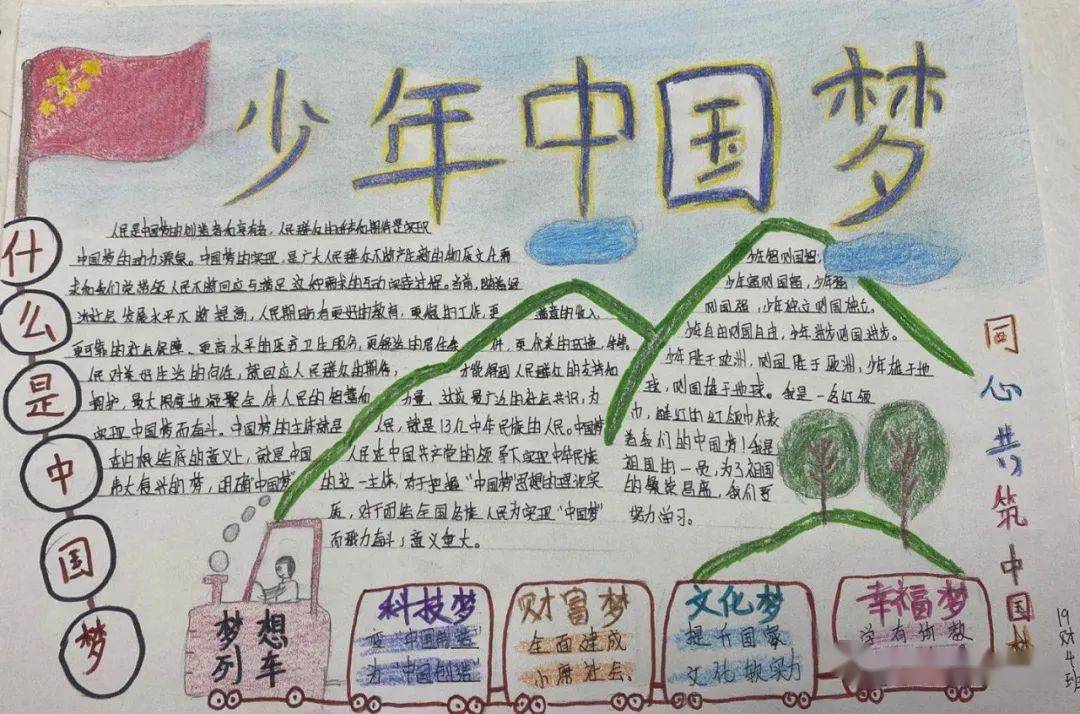 少年中国梦
什么是中国梦
人民是中国梦的创造者和享有者,人民群众的
中国梦的动力源泉。中国梦的实现,是广大人民群众不断产生新的物质文化需
求和我们党带领人民不断回应与满足这种需求的互动实践过程。当前,随着经
济社会发展水平不断提高,人民期盼有更好的教育,更稳定的工作,更 满意的收入、
更可靠的社会保障、更高水平的医疗卫生服务,更舒适的居住条 件,更优美的环境,
民对美好生活的向往,就回应人民群众的期待, 才能得到人民群众的支持和
拥护,最大限度地凝聚全体人民的智慧和 力量,达成最广泛的社会共识,为
实现中国梦而奋斗。中国梦的主体就是 人民,就是13亿中华民族的人民。中国梦
在归根结底的意义上,就是中国 人民在中国共产党的领导下实现中华民族
伟大复兴的梦,明确中国梦 的这一主体,对于把握“中国梦”思想的理论实
质,对于团结全国各族人民为实现“中国梦”
而努力奋斗,意义重大。
少年智则国智,
少年富则国富,少年强
则国强,少年独立则国独立。
少年自由则国自由,少年进步则国进步。
少年胜于欧洲,则国胜于欧洲,少年雄于地
球,则国雄于地球。我是一名红领
巾,鲜红的红领巾代表
着我们的中国梦!我是
祖国的一员,为了祖国
的繁荣昌盛,我们要
努力学习。
同心共筑中国梦
梦想
列车
科技梦
变“中国制造”
为“中国创造”
财富梦
全面建成
小康社会、
文化梦
提升国家
文化软实力
幸福梦
学有所教
19财4班